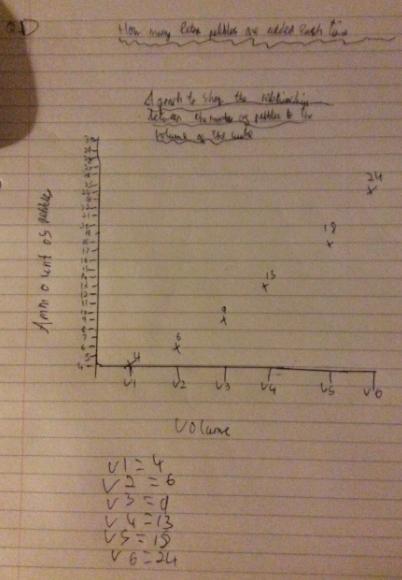 How many Extra pebbles are added Each time
A graph to show the relationship
between the number of pebbles to the
volume of the water
Ammount of pebble
24
18
13
9
6
4
V1 V2 V3 V4 V5 V6
Volume
V1=4
V2=6
V3=9
V4=13
V5=18
V6=24